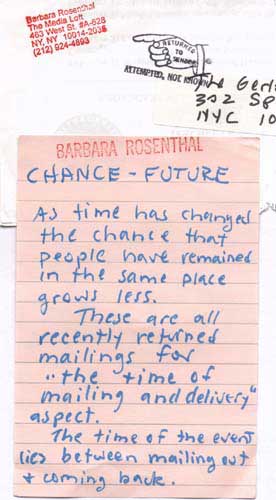 Barbara Rosenthal
The Media Loft
463 West St. #A-628
NY, NY 10014-2035
(212) 924-4893
RETURNED
TO
SENDER
ATTEMPTED, NOT KNOWN
The
302
NYC 10
BARBARA ROSENTHAL
CHANCE - FUTURE
As time has changed
the chance that
people have remained
in the same place
grows less.
These are all
recently returned
mailings for
"the time of
mailing and delivery"
aspect.
The time of the event
lies between mailing out
+ coming back.